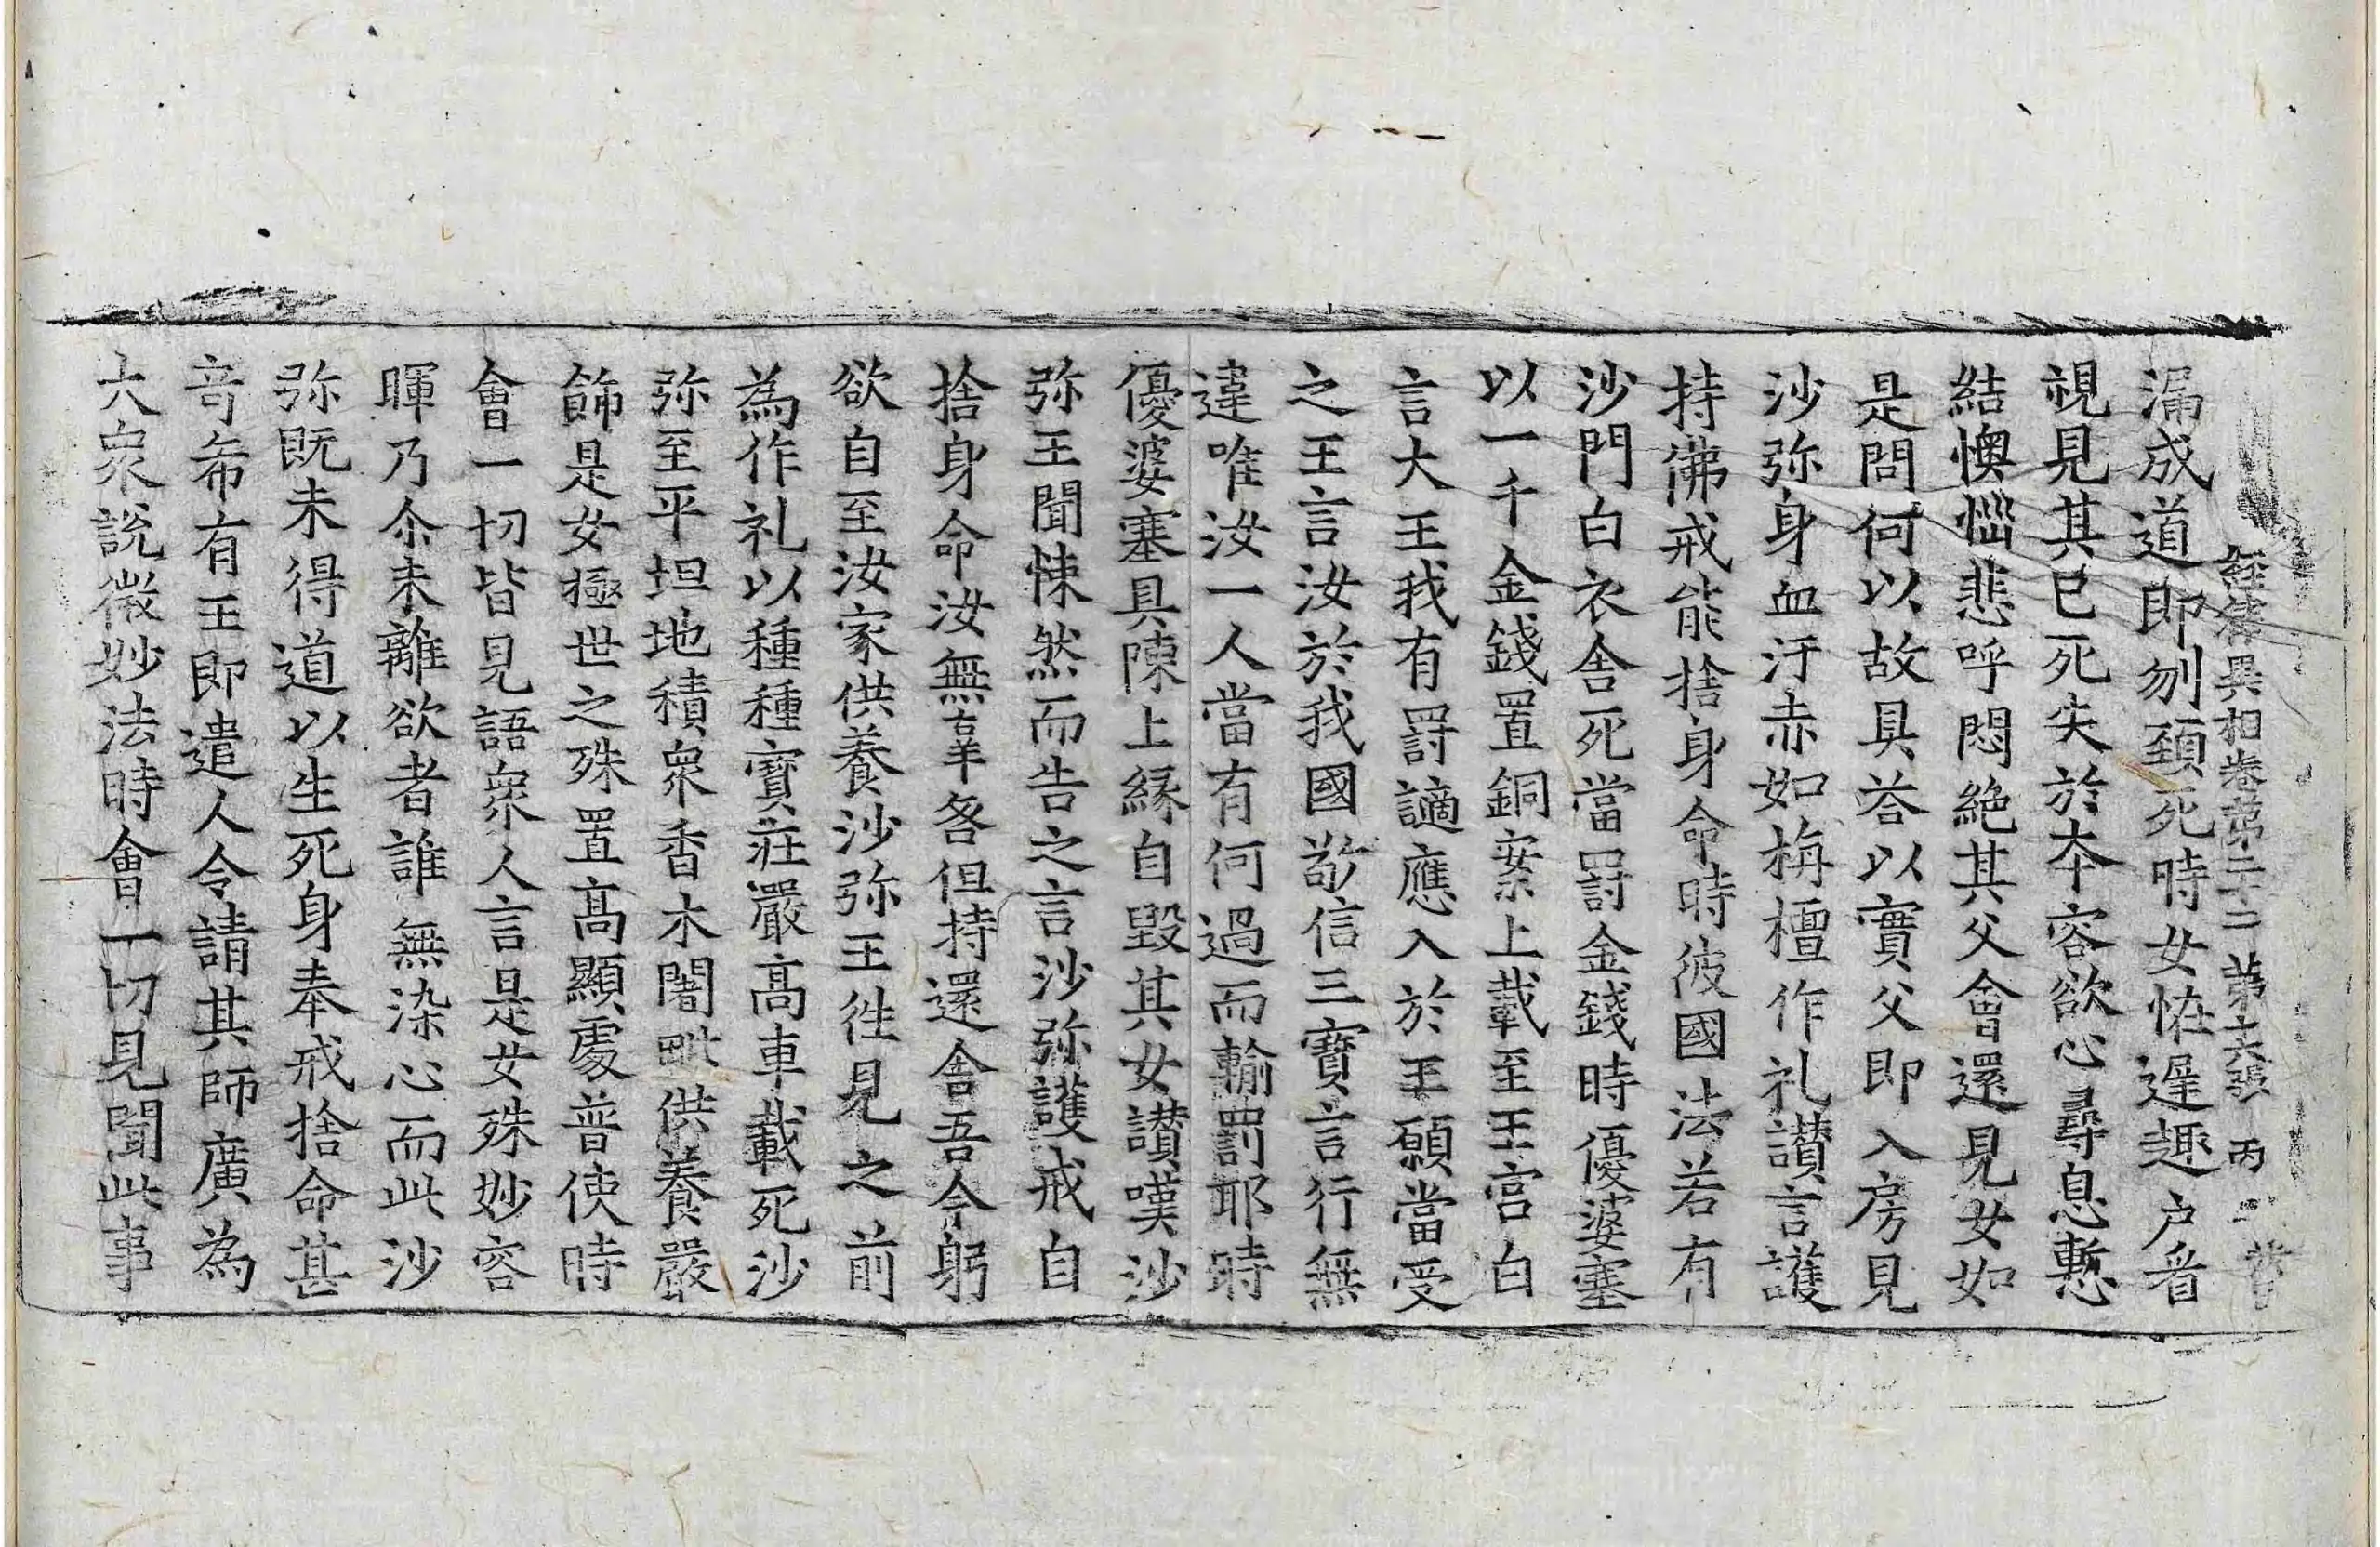 經律異相卷第二十二 第六張 丙
漏成道即刎頚死時女怪遲趣户看
視見其已死失於本容欲心尋息慙
結懊惱悲呼悶絶其父會還見女如
是問何以故具荅以實父即入房見
沙弥身血汙赤如栴檀作礼讃言護
持佛戒能捨身命時彼國法若有
沙門白衣舍死當罸金錢時優婆塞
以一千金錢置銅案上載至王宫白
言大王我有罸讁應入於王願當受
之王言汝於我國敬信三寶言行無
違唯汝一人當有何過而輸罰耶時
優婆塞具陳上緣自毀其女讃嘆沙
弥王聞悚然而告之言沙弥護戒自
捨身命汝無辜咎但持還舍吾今躬
欲自至汝家供養沙弥王徃見之前
為作礼以種種寳莊嚴髙車載死沙
弥至平坦地積衆香木闍毗供養嚴
飾是女極世之殊置髙顯處普使時
會一切皆見語衆人言是女殊妙容
暉乃尒未離欲者誰無染心而此沙
弥既未得道以生死身奉戒捨命甚
竒希有王即遣人令請其師廣為
大衆說微妙法時會一切見聞此事